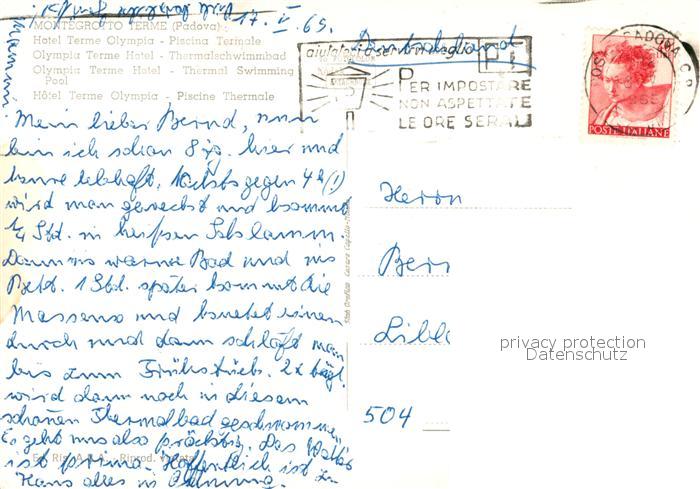 17. V. 65.
MONTEGROTTO TERME (Padova)
Hotel Terme Olympia - Piscina Termale
Olympia Terme Hotel - Thermalschwimmbad
Olympia Terme Hotel - Thermal Swimming
Pool
Hôtel Terme Olympia - Piscine Thermale
Mein lieber Bernd, nun
bin ich schon 8 Tg. hier und
kure lebhaft. Nachts gegen 4 h (!)
wird man geweckt und kommt
1/4 Std. in heißen Schlamm.
Dann ins warme Bad und ins
Bett. 1 Std. später kommt die
Masseuse und knetet einen
durch und dann schläft man
bis zum Frühstück. 2x tägl.
wird dann noch in diesem
schönen Thermalbad geschwommen.
Es geht uns also prächtig. Das Wetter
ist prima. Hoffentlich ist zu
Haus alles in Ordnung.
Mammi
Ed. Ris. A.C.A. - Riprod. Vietata
aiutateci a servirvi meglio
PT
PER IMPOSTARE
NON ASPETTATE
LE ORE SERALI
Deutschland
PADOVA C.P.
POSTE ITALIANE
Herrn
Ber
Libl
504
privacy protection
Datenschutz